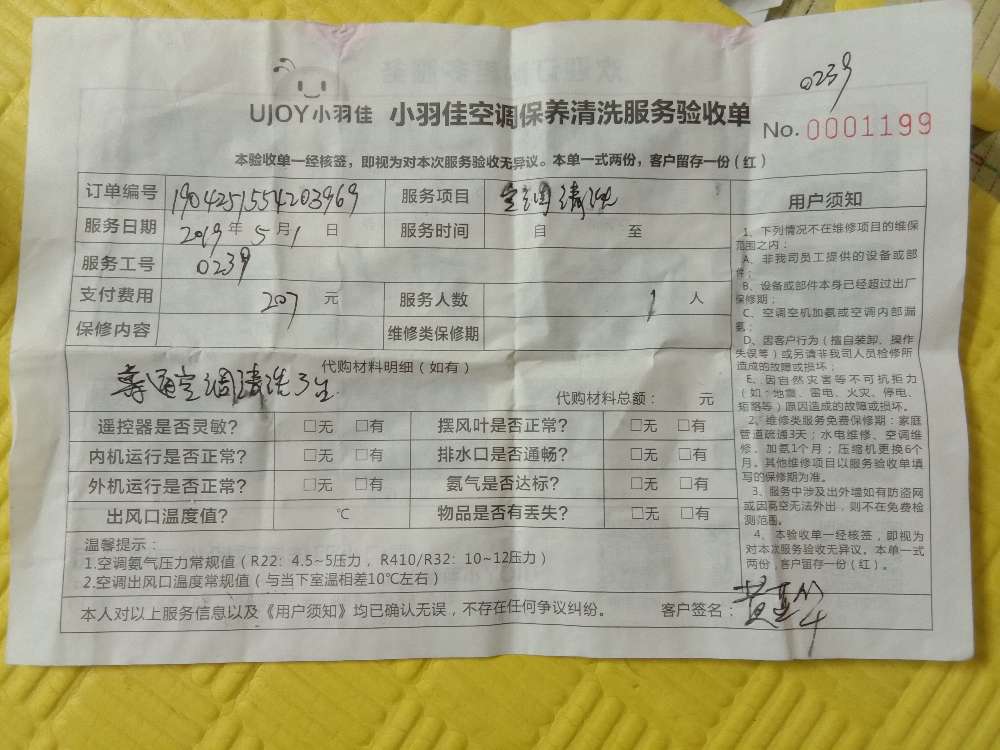 0239
UJOY小羽佳 小羽佳空调保养清洗服务验收单
No. 0001199
本验收单一经核签，即视为对本次服务验收无异议。本单一式两份，客户留存一份（红）
订单编号 190425155 4203969 服务项目 空调清洗
服务日期 2019年5月1日 服务时间 自 至
服务工号 0239
支付费用 207 元 服务人数 1 人
保修内容 维修类保修期
代购材料明细（如有）
普通空调清洗3台
代购材料总额： 元
遥控器是否灵敏? □无 □有 摆风叶是否正常? □无 □有
内机运行是否正常? □无 □有 排水口是否通畅? □无 □有
外机运行是否正常? □无 □有 氨气是否达标? □无 □有
出风口温度值? ℃ 物品是否有丢失? □无 □有
温馨提示：
1.空调氨气压力常规值（R22：4.5~5压力，R410/R32：10~12压力）
2.空调出风口温度常规值（与当下室温相差10℃左右）
本人对以上服务信息以及《用户须知》均已确认无误，不存在任何争议纠纷。 客户签名：
用户须知
1、下列情况不在维修项目的维保
范围之内：
A、非我司员工提供的设备或部
件；
B、设备或部件本身已经超过出厂
保修期；
C、空调空机加氨或空调内部漏
氨；
D、因客户行为（擅自装卸、操作
失误等）或另请非我司人员检修所
造成的故障或损坏；
E、因自然灾害等不可抗拒力
（如：地震、雷电、火灾、停电、
短路等）原因造成的故障或损坏。
2、维修类服务免费保修期：家庭
管道疏通3天；水电维修、空调维
修、加氨1个月；压缩机更换6个
月。其他维修项目以服务验收单填
写的保修期为准。
3、服务中涉及出外墙如有防盗网
或因高空无法外出，则不在免费检
测范围。
4、本验收单一经核签，即视为
对本次服务验收无异议。本单一式
两份，客户留存一份（红）。